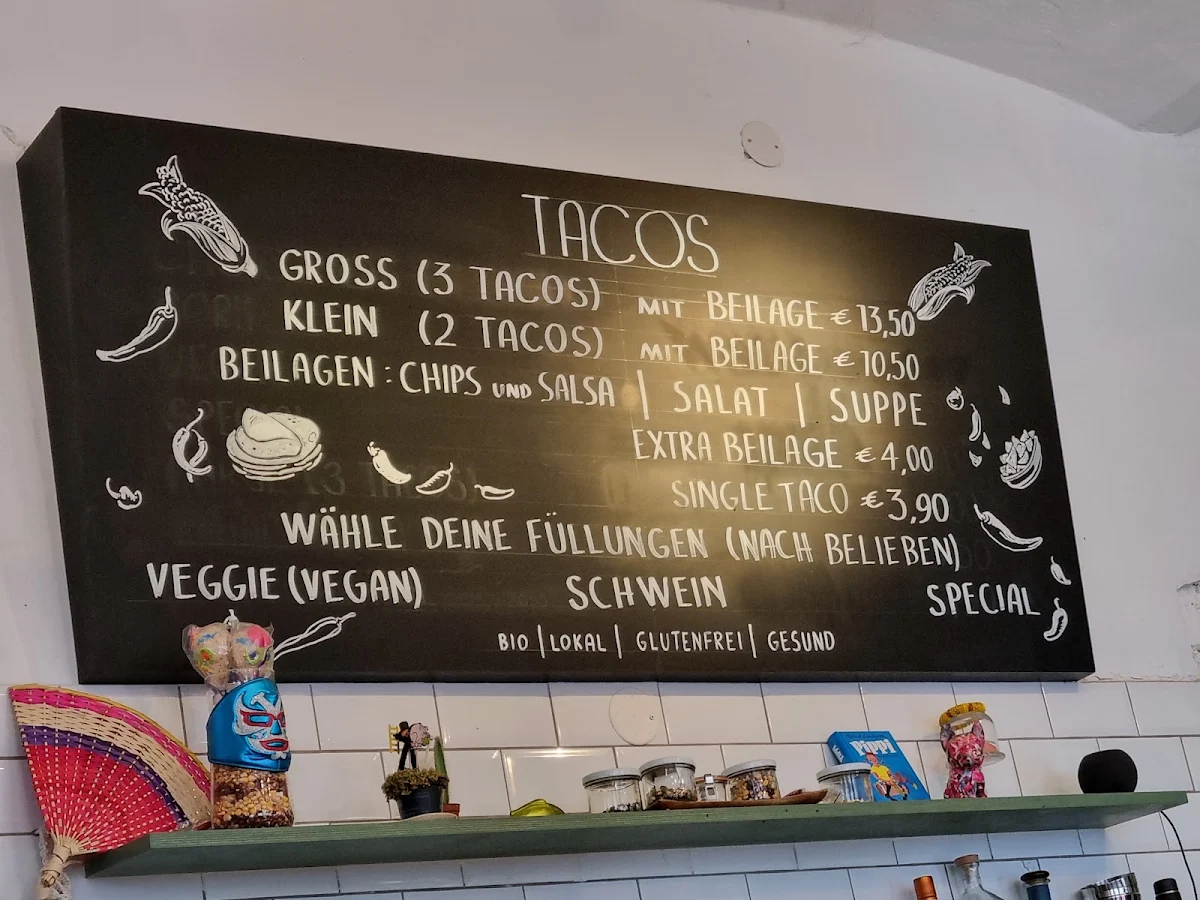 TACOS
GROSS (3 TACOS) MIT BEILAGE € 13,50
KLEIN (2 TACOS) MIT BEILAGE € 10,50
BEILAGEN : CHIPS UND SALSA | SALAT | SUPPE
EXTRA BEILAGE € 4,00
SINGLE TACO € 3,90
WÄHLE DEINE FÜLLUNGEN (NACH BELIEBEN)
VEGGIE (VEGAN) SCHWEIN SPECIAL
BIO | LOKAL | GLUTENFREI | GESUND
Pippi